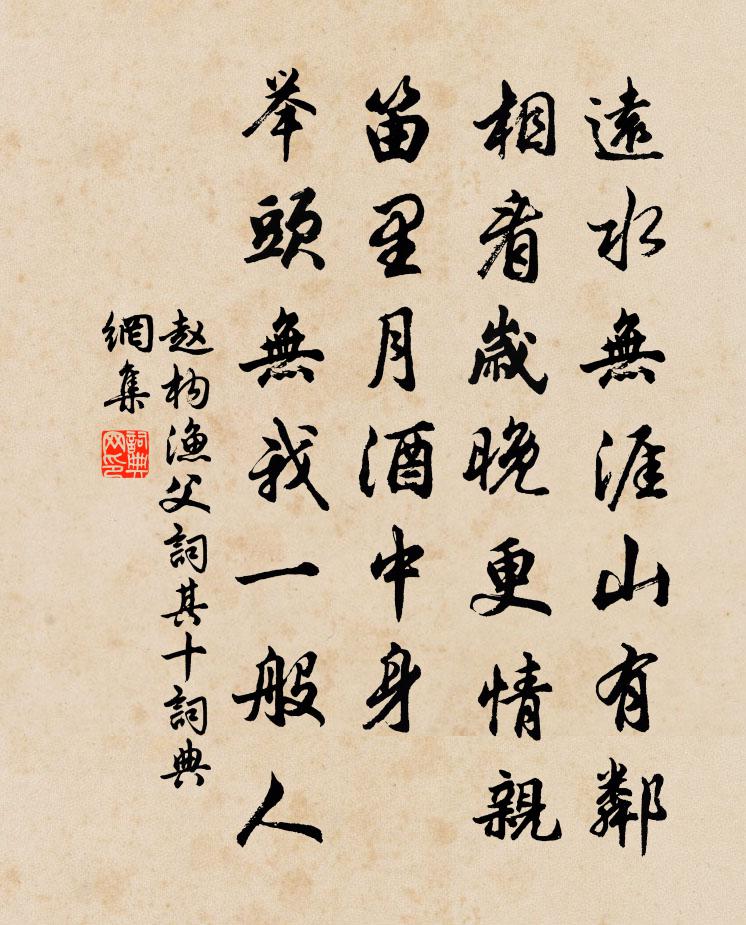 遠水無涯山有鄰
相看歲晚更情親
笛里月酒中身
举頭無我一般人
赵构漁父詞其十詞典
網集
詞典网印